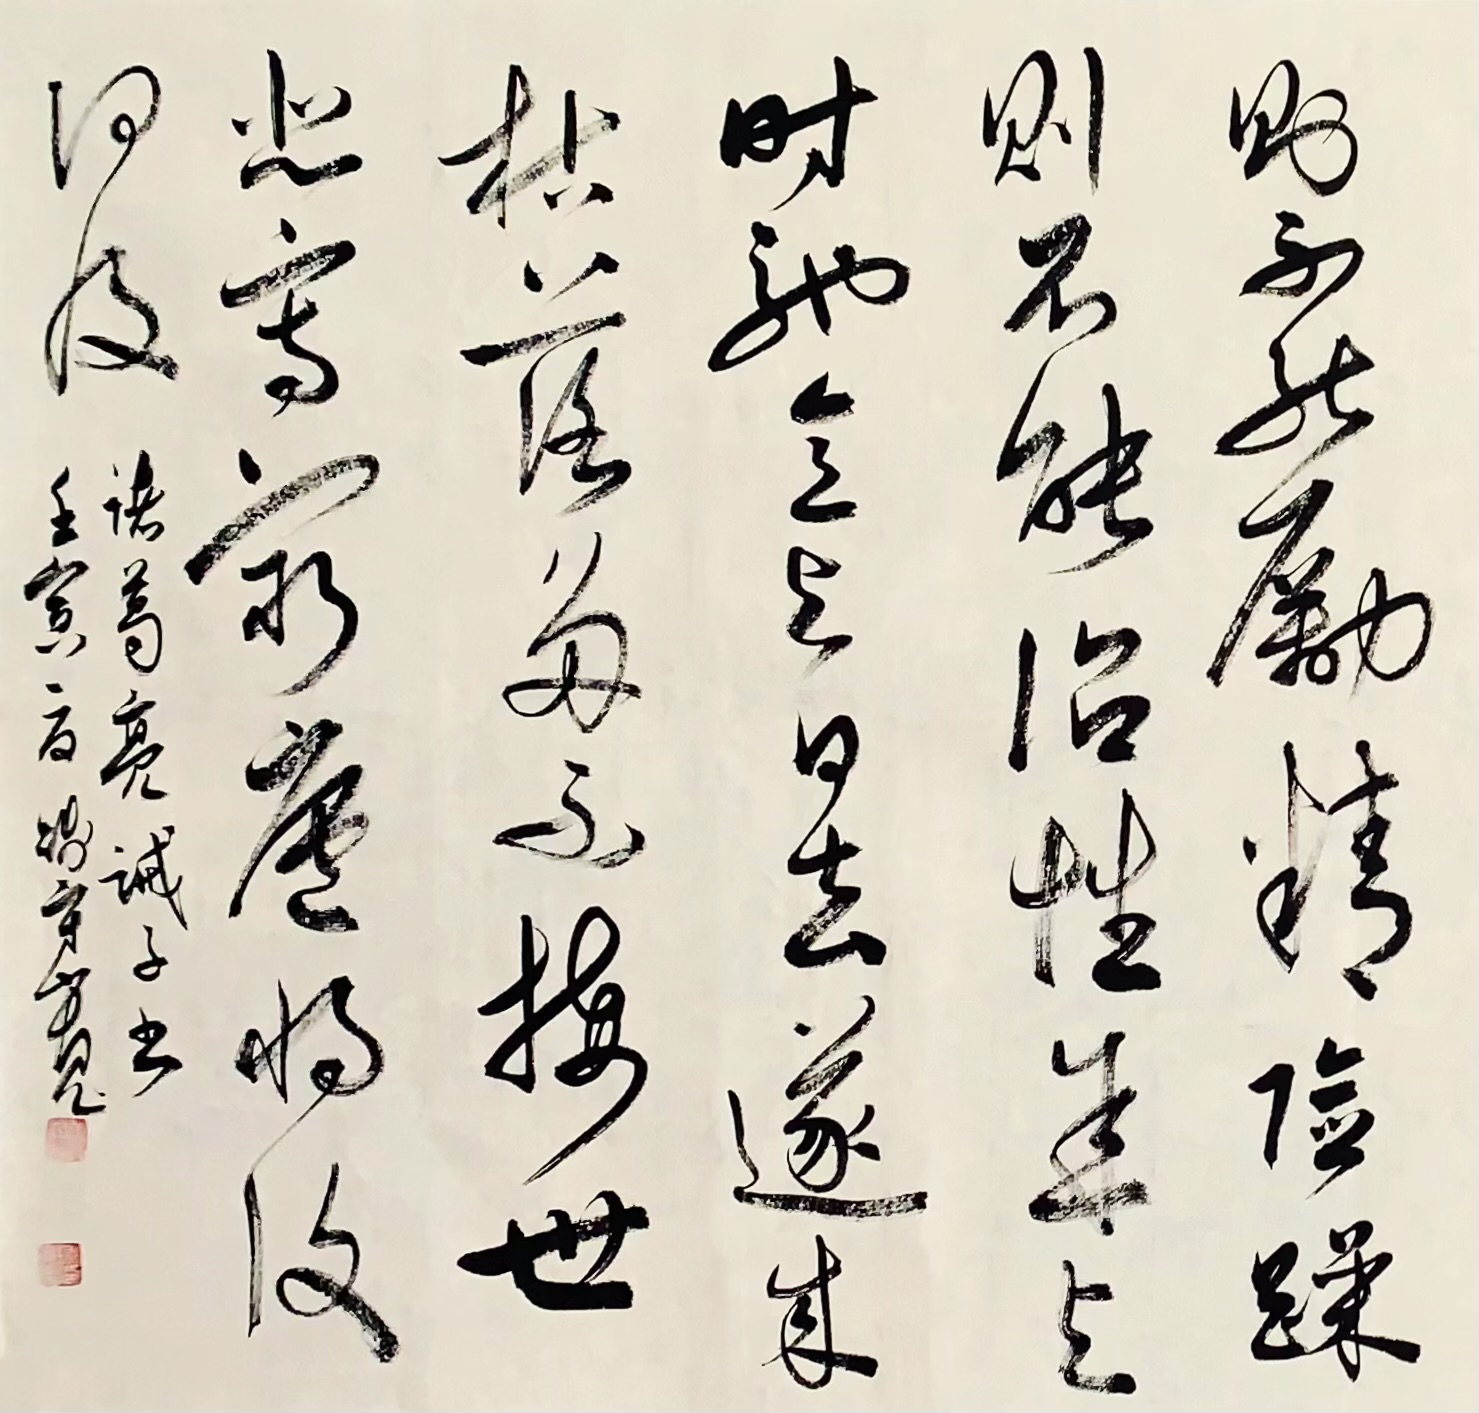 则不能勵精險躁
则不能治性年与
时驰意与日去遂成
枯落多不接世
悲守窮廬将復
何及
诸葛亮诫子书
壬寅夏